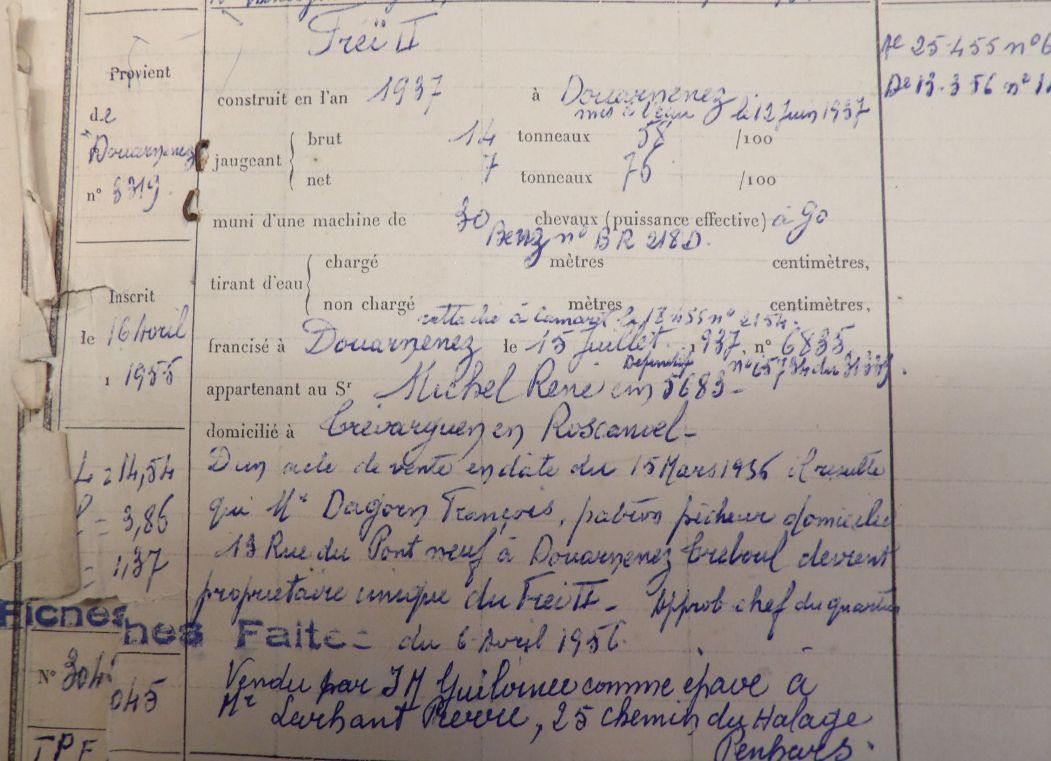 Treï II
Provient
de
Douarnenez
n° 8319
construit en l'an 1937 à Douarnenez
mis à l'eau le 12 Juin 1937
jaugeant
brut 14 tonneaux 58 /100
net 7 tonneaux 76 /100
muni d'une machine de 30 chevaux (puissance effective) à 90
Benz n° BR 218 D.
tirant d'eau
chargé mètres centimètres,
non chargé mètres centimètres,
Inscrit
le 16 Avril
1955
francisé à Douarnenez le 15 Juillet 1937, n° 6835
appartenant au Sr Michel René 5683
domicilié à Trévarguen en Roscanvel
D'un acte de vente en date du 15 Mars 1956 il resulte
que Mr Dagorn François, patron pêcheur domicilié
19 Rue du Pont neuf à Douarnenez Treboul devient
propriétaire unique du Treï II - Approb chef du quartier
du 6 Avril 1956
L = 14,54
= 3,86
= 1,37
Fiches
hes Faites
Vendu par I M Guilvinec comme épave à
Mr Pierre, 25 chemin du Halage
Penhars.
N° 304
045
TPF